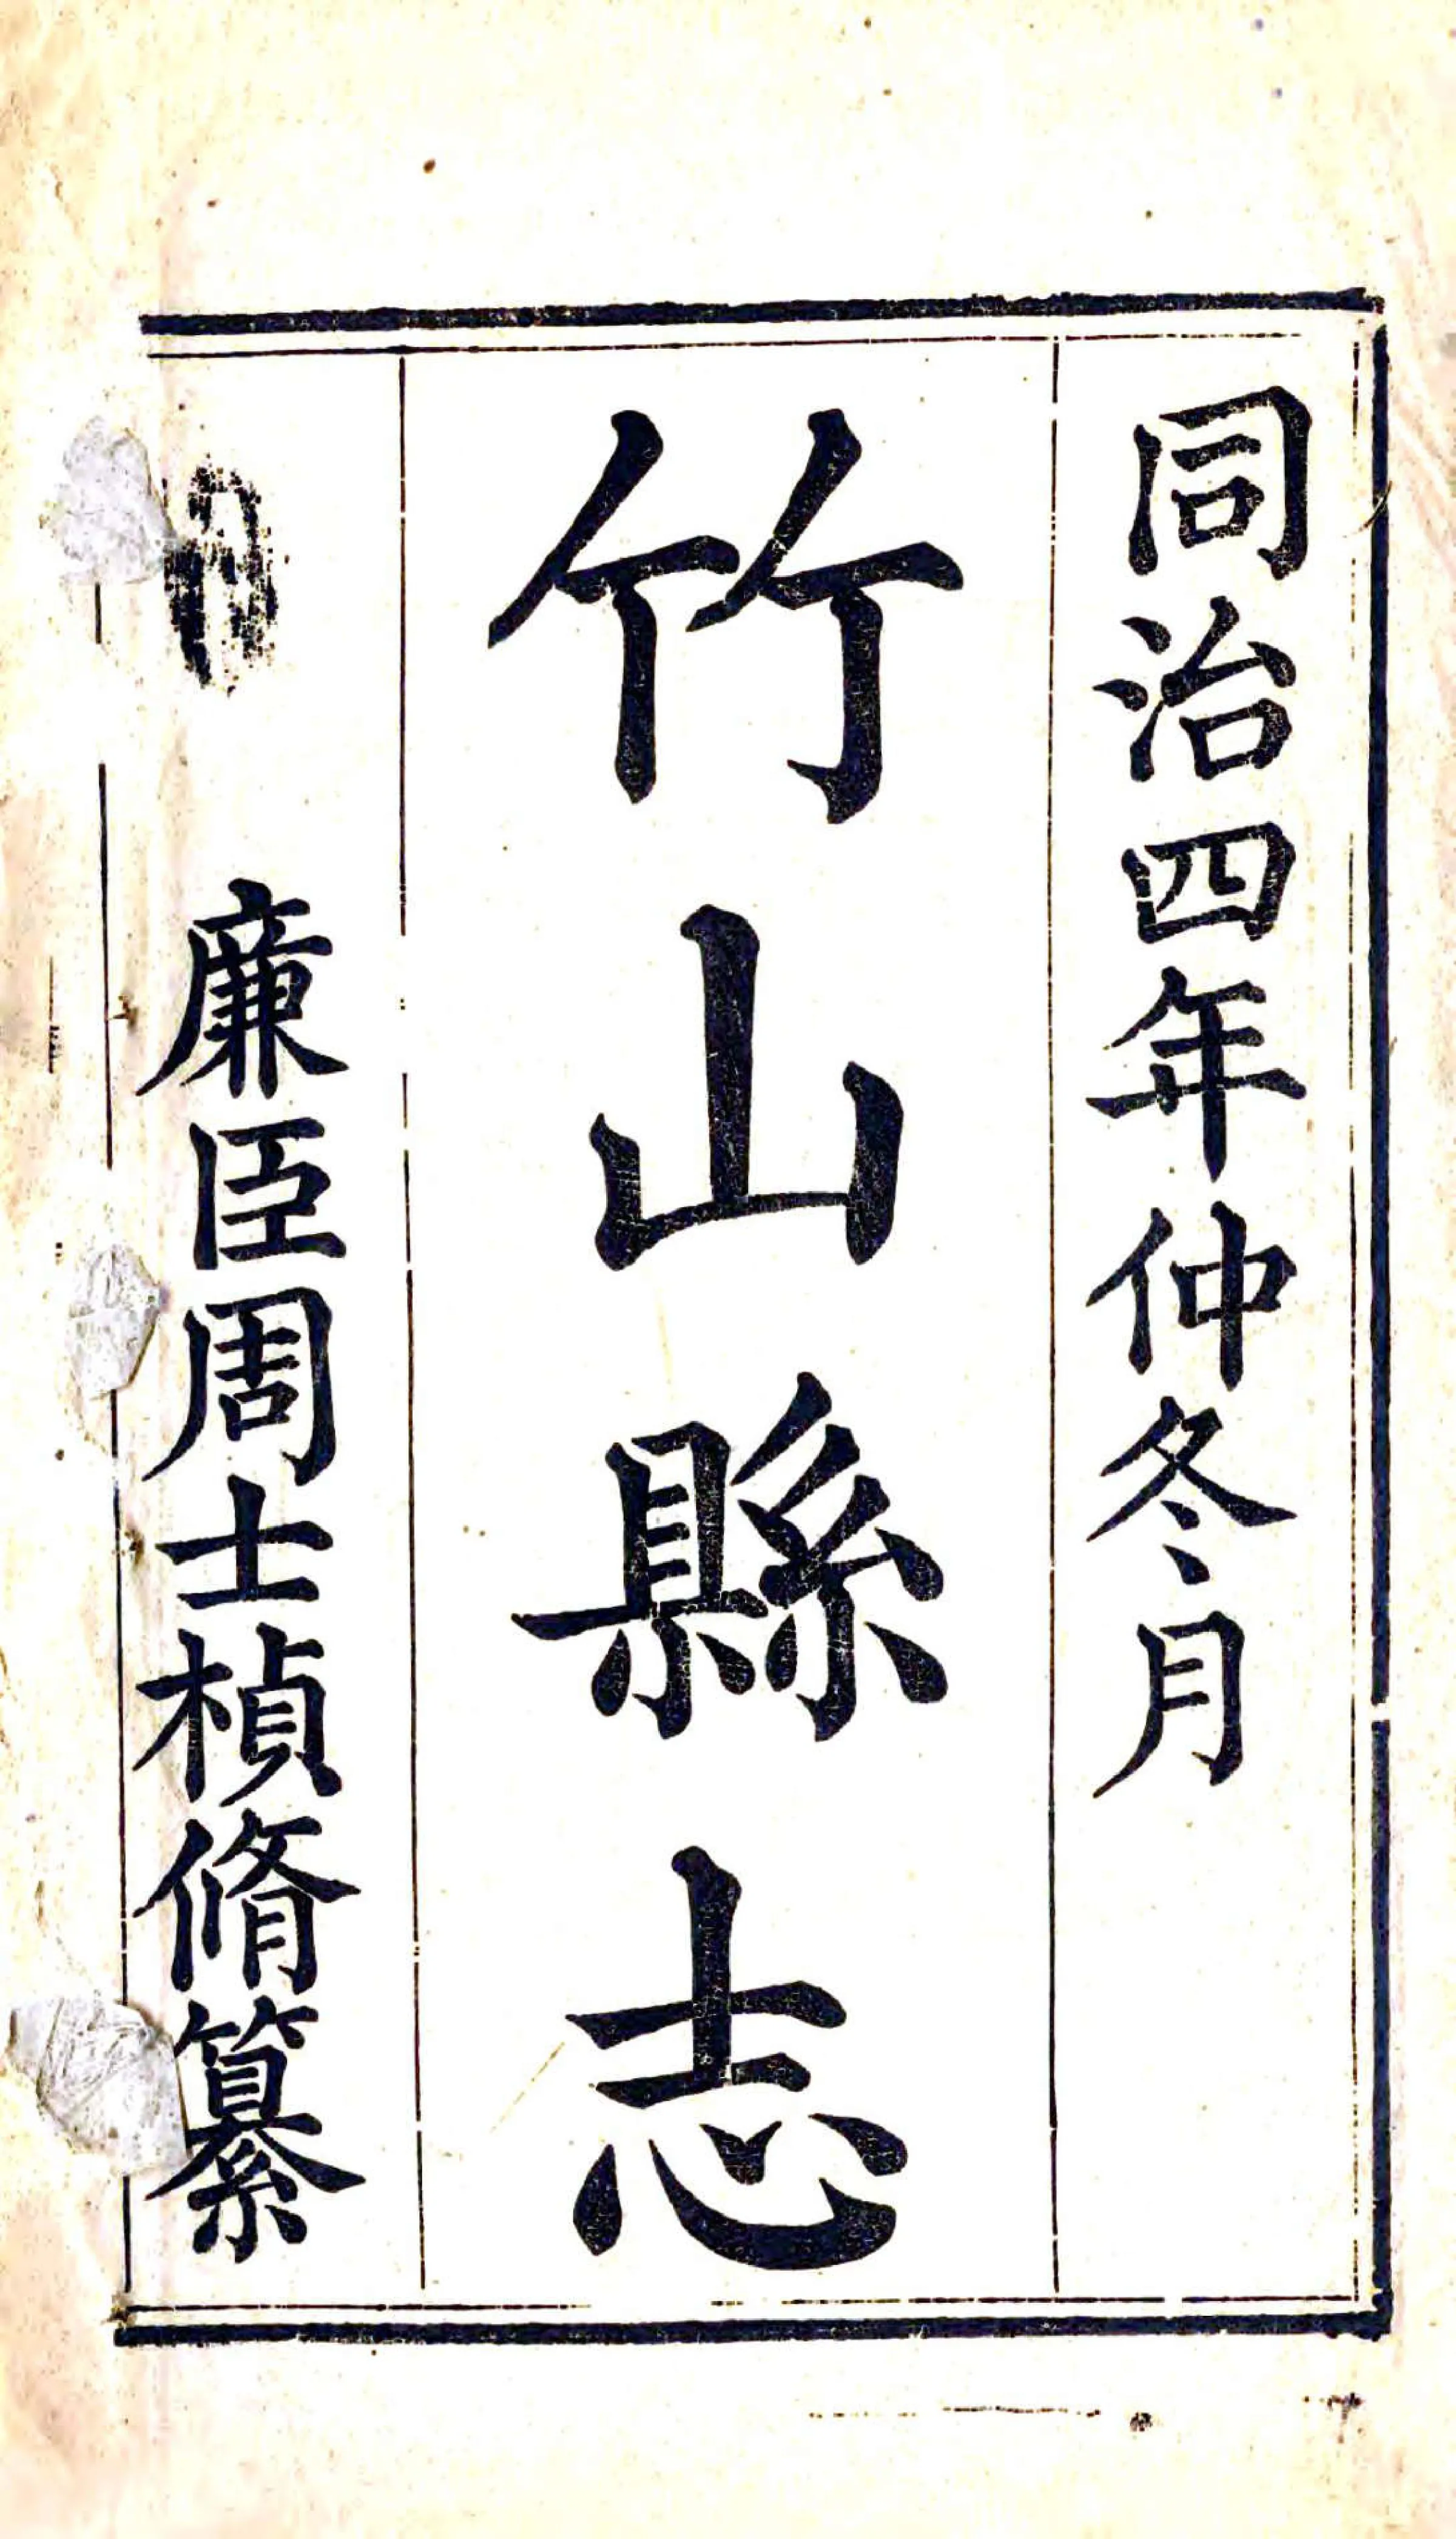 同治四年仲冬月
竹山縣志
廉臣周士楨脩纂